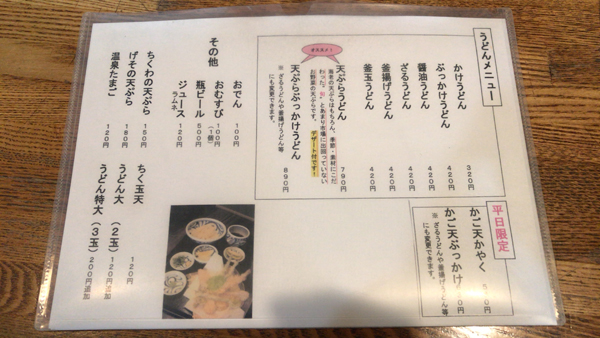 うどんメニュー
かけうどん 320
ぶっかけうどん 420
醤油うどん 420
ざるうどん 420
釜揚げうどん 420
釜玉うどん 420
オススメ！
天ぷらうどん 790
海老の天ぷらはもちろん、季節・素材にこだ
わった！とあまり市場に出回っていない
お野菜の天ぷらです。デザート付です！
天ぷらぶっかけうどん 890
※ ざるうどんや釜揚げうどん等
にも変更できます。
平日限定
かご天かやく
かご天ぶっかけ
※ ざるうどんや釜揚げうどん等
にも変更できます。
その他
おでん 100円
おむすび 100円
（1個）
瓶ビール 500円
ジュース 120円
ラムネ
ちくわの天ぷら 150円
げその天ぷら 180円
温泉たまご 120円
ちく玉天 120円
うどん大（2玉）120円追加
うどん特大（3玉）200円追加